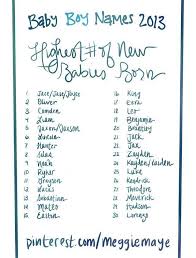 Baby Boy Names 2013
Highest # of New
Babies Born
1 Jace/Jayce/Jayse
2 Oliver
3 Camden
4 Liam
5 Jaxon/Jaxson
6 Lincoln
7 Hunter
8 Silas
9 Noah
10 Ryker
11 Grayson
12 Lucas
13 Sebastian
14 Mateo
15 Easton
16 King
17 Ezra
18 Leo
19 Benjamin
20 Brantley
21 Jack
22 Ian
23 Zayden
24 Kayden/Caiden
25 Luke
26 Kendrick
27 Theodore
28 Maverick
29 Hudson
30 Lorenzo
pinterest.com/meggiemaye